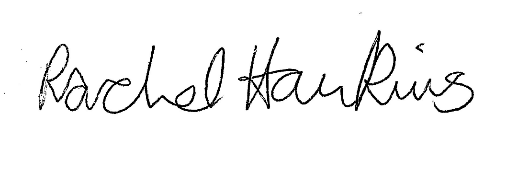 Rachel Hawkins